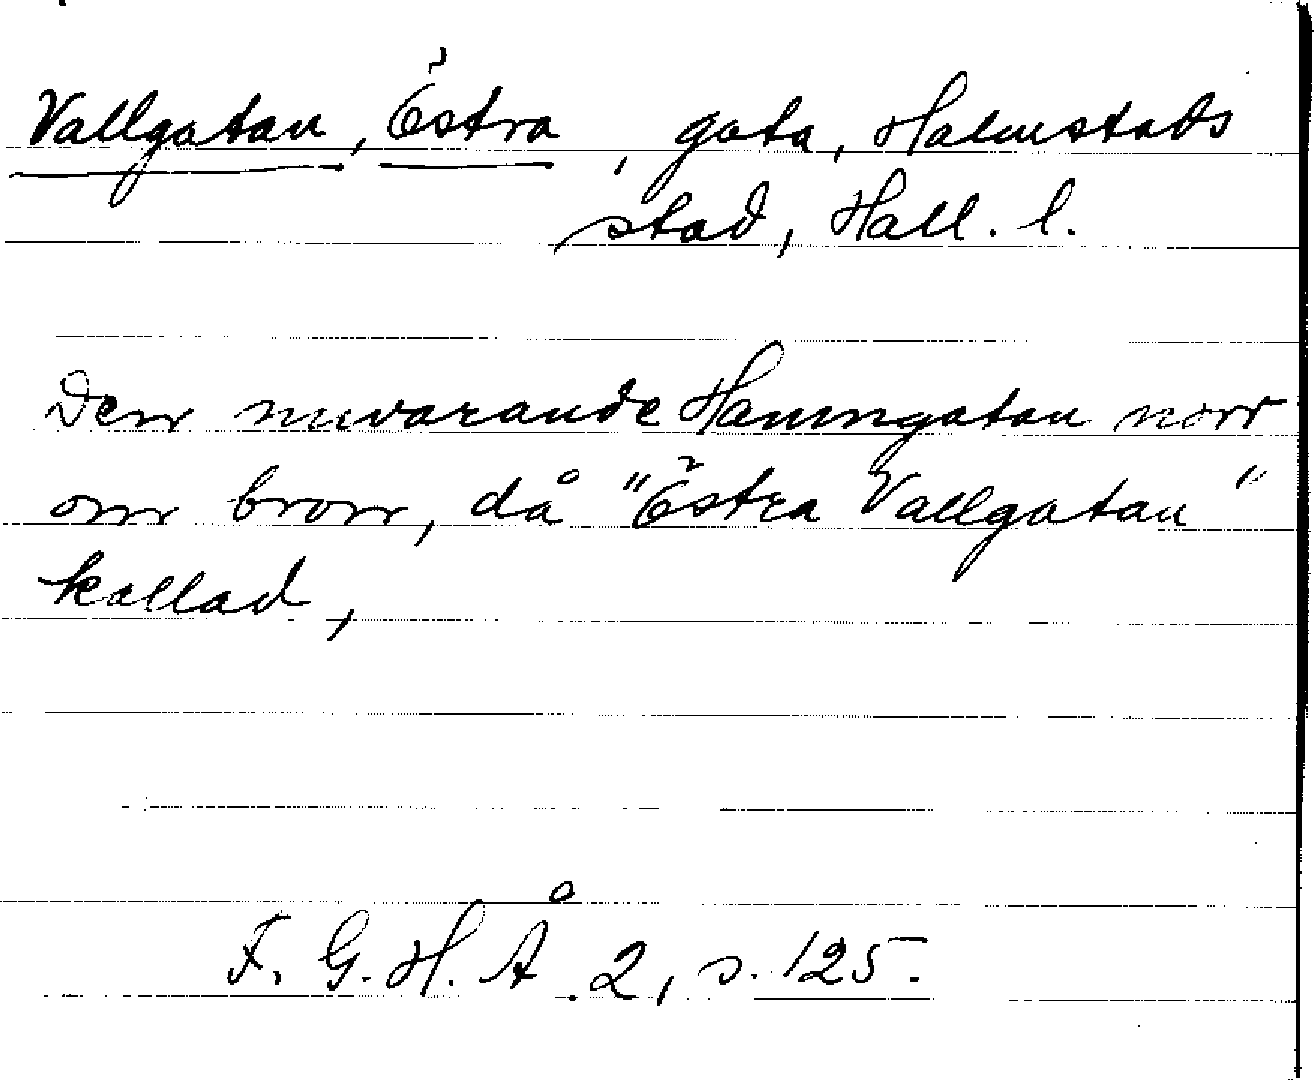 Vallgatan, Östra, gata, Halmstads
stad, Hall. l.
Den nuvarande Hamngatan norr
om bron, då "Östra Vallgatan"
kallad,
F. G. H. Å. 2, s. 125.